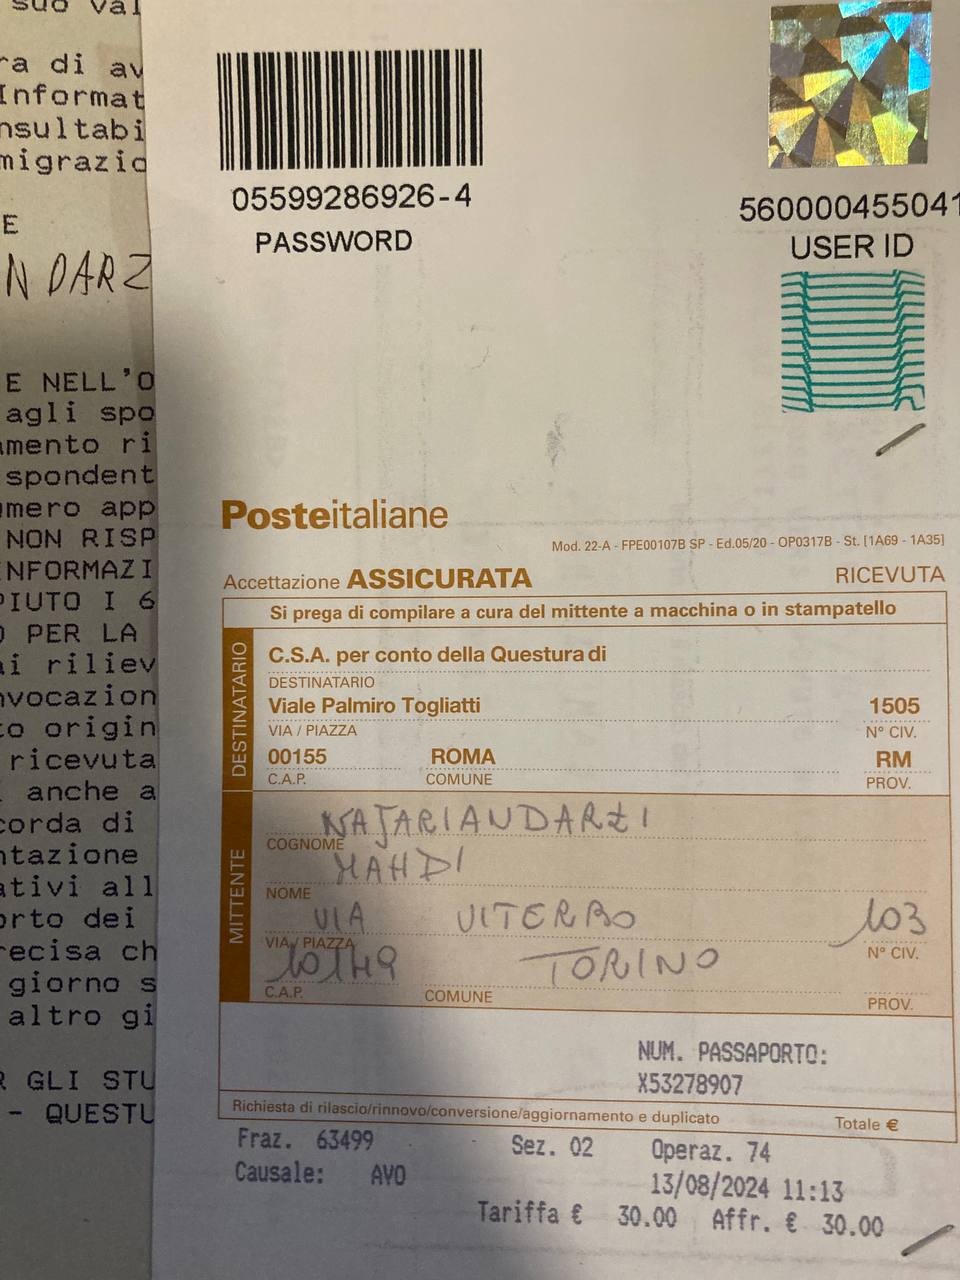 suo val
ra di av
Informat
nsultabi
migrazio
E
N DARZ
E NELL'O
agli spo
amento ri
spondent
umero app
NON RISP
INFORMAZI
PIUTO I 6
O PER LA
ai riliev
nvocazion
to origin
ricevuta
anche a
corda di
ntazione
ativi all
orto dei
recisa ch
giorno s
altro gi
R GLI STU
- QUESTU
05599286926-4
PASSWORD
560000455041
USER ID
Posteitaliane
Mod. 22-A - FPE00107B SP - Ed.05/20 - OP0317B - St. [1A69 - 1A35]
Accettazione ASSICURATA RICEVUTA
Si prega di compilare a cura del mittente a macchina o in stampatello
DESTINATARIO
C.S.A. per conto della Questura di
DESTINATARIO
Viale Palmiro Togliatti 1505
VIA / PIAZZA N° CIV.
00155 ROMA RM
C.A.P. COMUNE PROV.
MITTENTE
NAJARIANDARZI
COGNOME
MAHDI
NOME
VIA VITERBO 103
VIA / PIAZZA N° CIV.
10149 TORINO
C.A.P. COMUNE PROV.
NUM. PASSAPORTO:
X53278907
Richiesta di rilascio/rinnovo/conversione/aggiornamento e duplicato Totale €
Fraz. 63499 Sez. 02 Operaz. 74
Causale: AVO 13/08/2024 11:13
Tariffa € 30.00 Affr. € 30.00